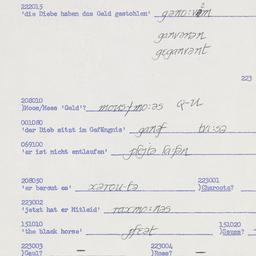 222015
'die Diebe haben das Geld gestohlen'
ganvenən
gəganvənt
223
208010
)Moos/Mees 'Geld'? mo:us/mo:əs
001080
'der Dieb sitzt im Gefängnis' ganəf
069100
'er ist nicht entlaufen'
208030
'er beraut es' xarou-tə
223001
)Charoote?
223002
'jetzt hat er Mitleid' raxmo:nəs
151010
'the black horse' pfert
151020
)Suuss?
223003
)Gaul? —
223004
)Ross? —